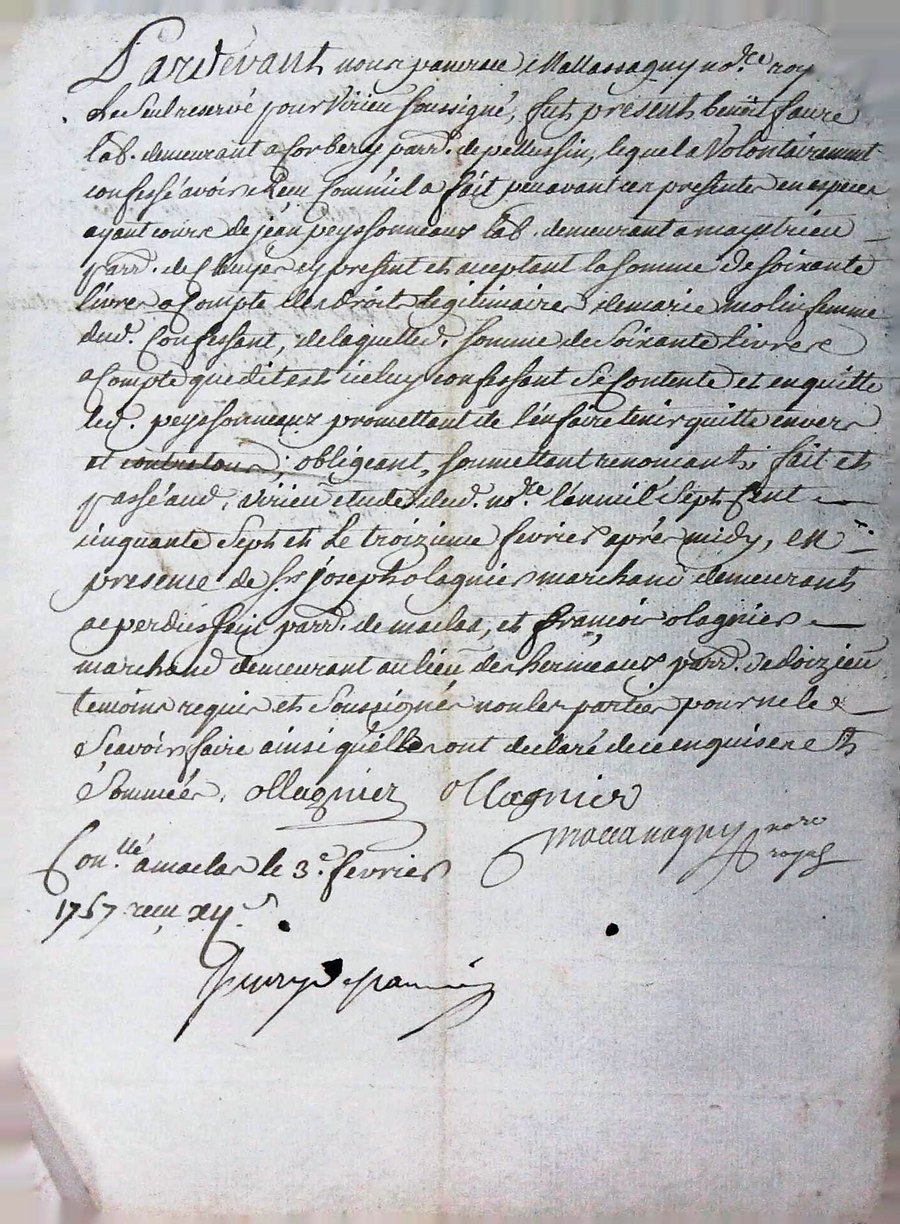 Pardevant nous pancrace Mallassagny no.re roy
le seul reservé pour Virieu soussigné, fut present benoit faure
lab. demeurant a Corbery parr. de pellussin, lequel a Volontairement
confessé avoir Reçu Comme il a fait peu avant ces presentes en especes
ayant cours de jean peyssonneaux lab. demeurant a maystrieu
parr. de Chuyer cy present et aceptant la somme de soixante
livres a Compte des droits legitimaires de marie molin femme
dud. Confessant, de laquelle d. somme de soixante livres
a Compte que dit est iceluy confessant se Contente et en quitte
led. peyssonneaux promettant de l'en faire tenir quitte envers
et contre tous; obligeant, soumettant renoncant, fait et
passé aud. virieu etude dud. no.re l'an mil Sept Cent
cinquante Sept et Le troizieme fevrier aprés midy, en
presence de S.r joseph olagnier marchand demeurant
a parr. de maclas, et françois olagnier
marchand demeurant au lieu des hermeaux parr. de doizieu
temoins requis et Soussignés non les parties pour ne le
Sçavoir faire ainsi qu'elles ont declaré de ce enquises et
Sommées. ollagnier ollagnier
Mallassagny no.re
royal
Con.llé a maclas le 3.e fevrier
1757 reçu xij s